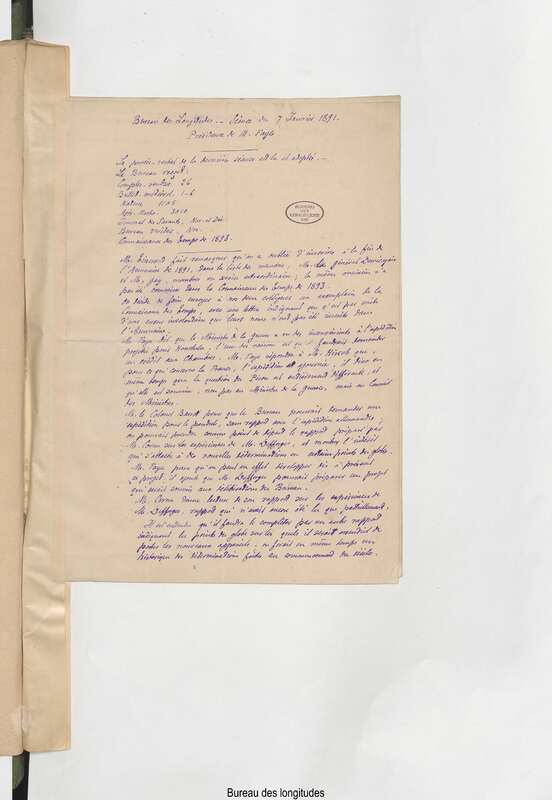 Bureau des Longitudes. — Séance du 7 Janvier 1891.
Présidence de M. Faye
Le procès-verbal de la dernière séance est lu et adopté. —
Le Bureau reçoit:
Comptes rendus 26
Bullet. météorol. 1-6
Nature 1105
Astr. Nach. 3010
Journal de Savants, Nov. et Déc.
Bureau Nov.
Connaissance des Temps de 1893.
M. fait remarquer qu'on a oublié d'inscrire à la fin de
l'Annuaire de 1891, dans la liste des membres, M. le général Derrécagaix
et M. Gay, membres en service extraordinaire; la même omission n'a
pas été commise dans la Connaissance des Temps de 1893.
On décide de faire envoyer à nos deux collègues un exemplaire de la
Connaissance des Temps, avec une lettre indiquant que c'est par suite
d'une erreur involontaire que leurs noms n'ont pas été inscrits dans
l'Annuaire.
M. Faye dit que le Ministre de la guerre a vu des inconvénients à l'expédition
projetée par l'une des raisons est qu'il faudrait demander
un crédit aux Chambres. M. Faye répondra à M. Hirsch que,
pour ce qui concerne la France, l'expédition est ajournée, il dira en
même temps que la question du Pérou est entièrement différente, et
qu'elle est soumise, non pas au Ministre de la guerre, mais au Conseil
des Ministres.
M. le Colonel Bassot pense que le Bureau pourrait demander une
expédition pour le pendule, sans rapport avec l'expédition allemande;
on pourrait prendre comme point de départ le rapport préparé par
M. Cornu sur les expériences de M. Defforges, et montrer l'intérêt
qui s'attache à des nouvelles déterminations en certains points du globe.
M. Faye pense qu'on peut en effet développer dès à présent
ce projet. il ajoute que M. Defforges pourrait préparer un projet
qui serait soumis aux délibérations du Bureau.
M. Cornu donne lecture de son rapport sur les expériences de
M. Defforges, rapport qui n'avait encore été lu que partiellement.
Il est entendu qu'il faudra le compléter par un autre rapport
indiquant les points du globe sur lesquels il serait essentiel de
porter les nouveaux appareils. on ferait en même temps un
historique des déterminations faites au commencement du siècle.
Bureau des longitudes